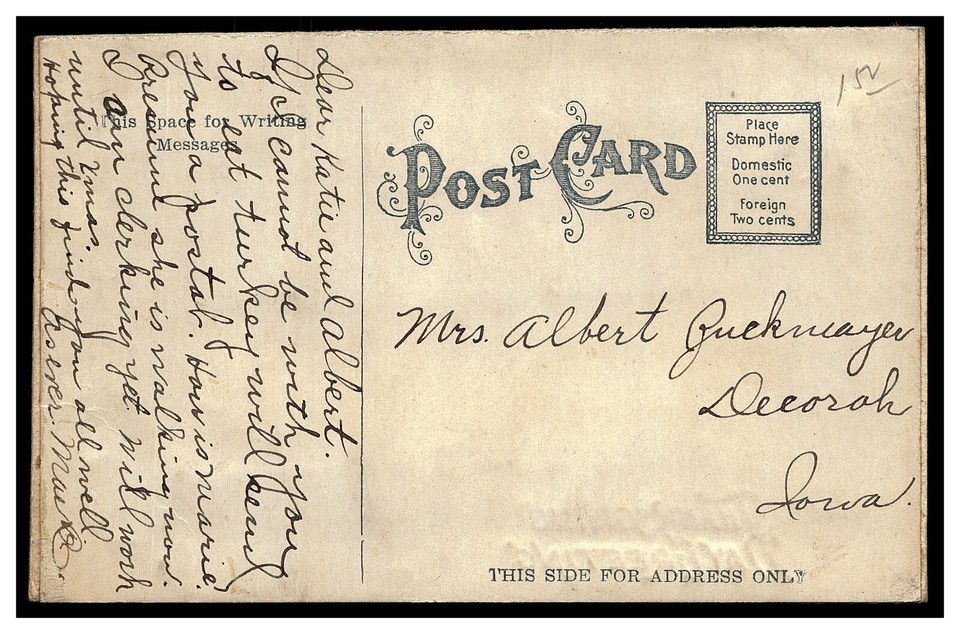 Dear Katie and Albert.
If I cannot be with you
to eat turkey will send
you a postal. How is Marie?
she is walking now.
I am clerking yet. Will work
until Xmas.
Hoping this finds you all well
As ever. Mae
This Space for Writing
Messages
POST CARD
Place
Stamp Here
Domestic
One cent
Foreign
Two cents
152
Mrs. Albert Ruckmayer
Decorah
Iowa.
THIS SIDE FOR ADDRESS ONLY